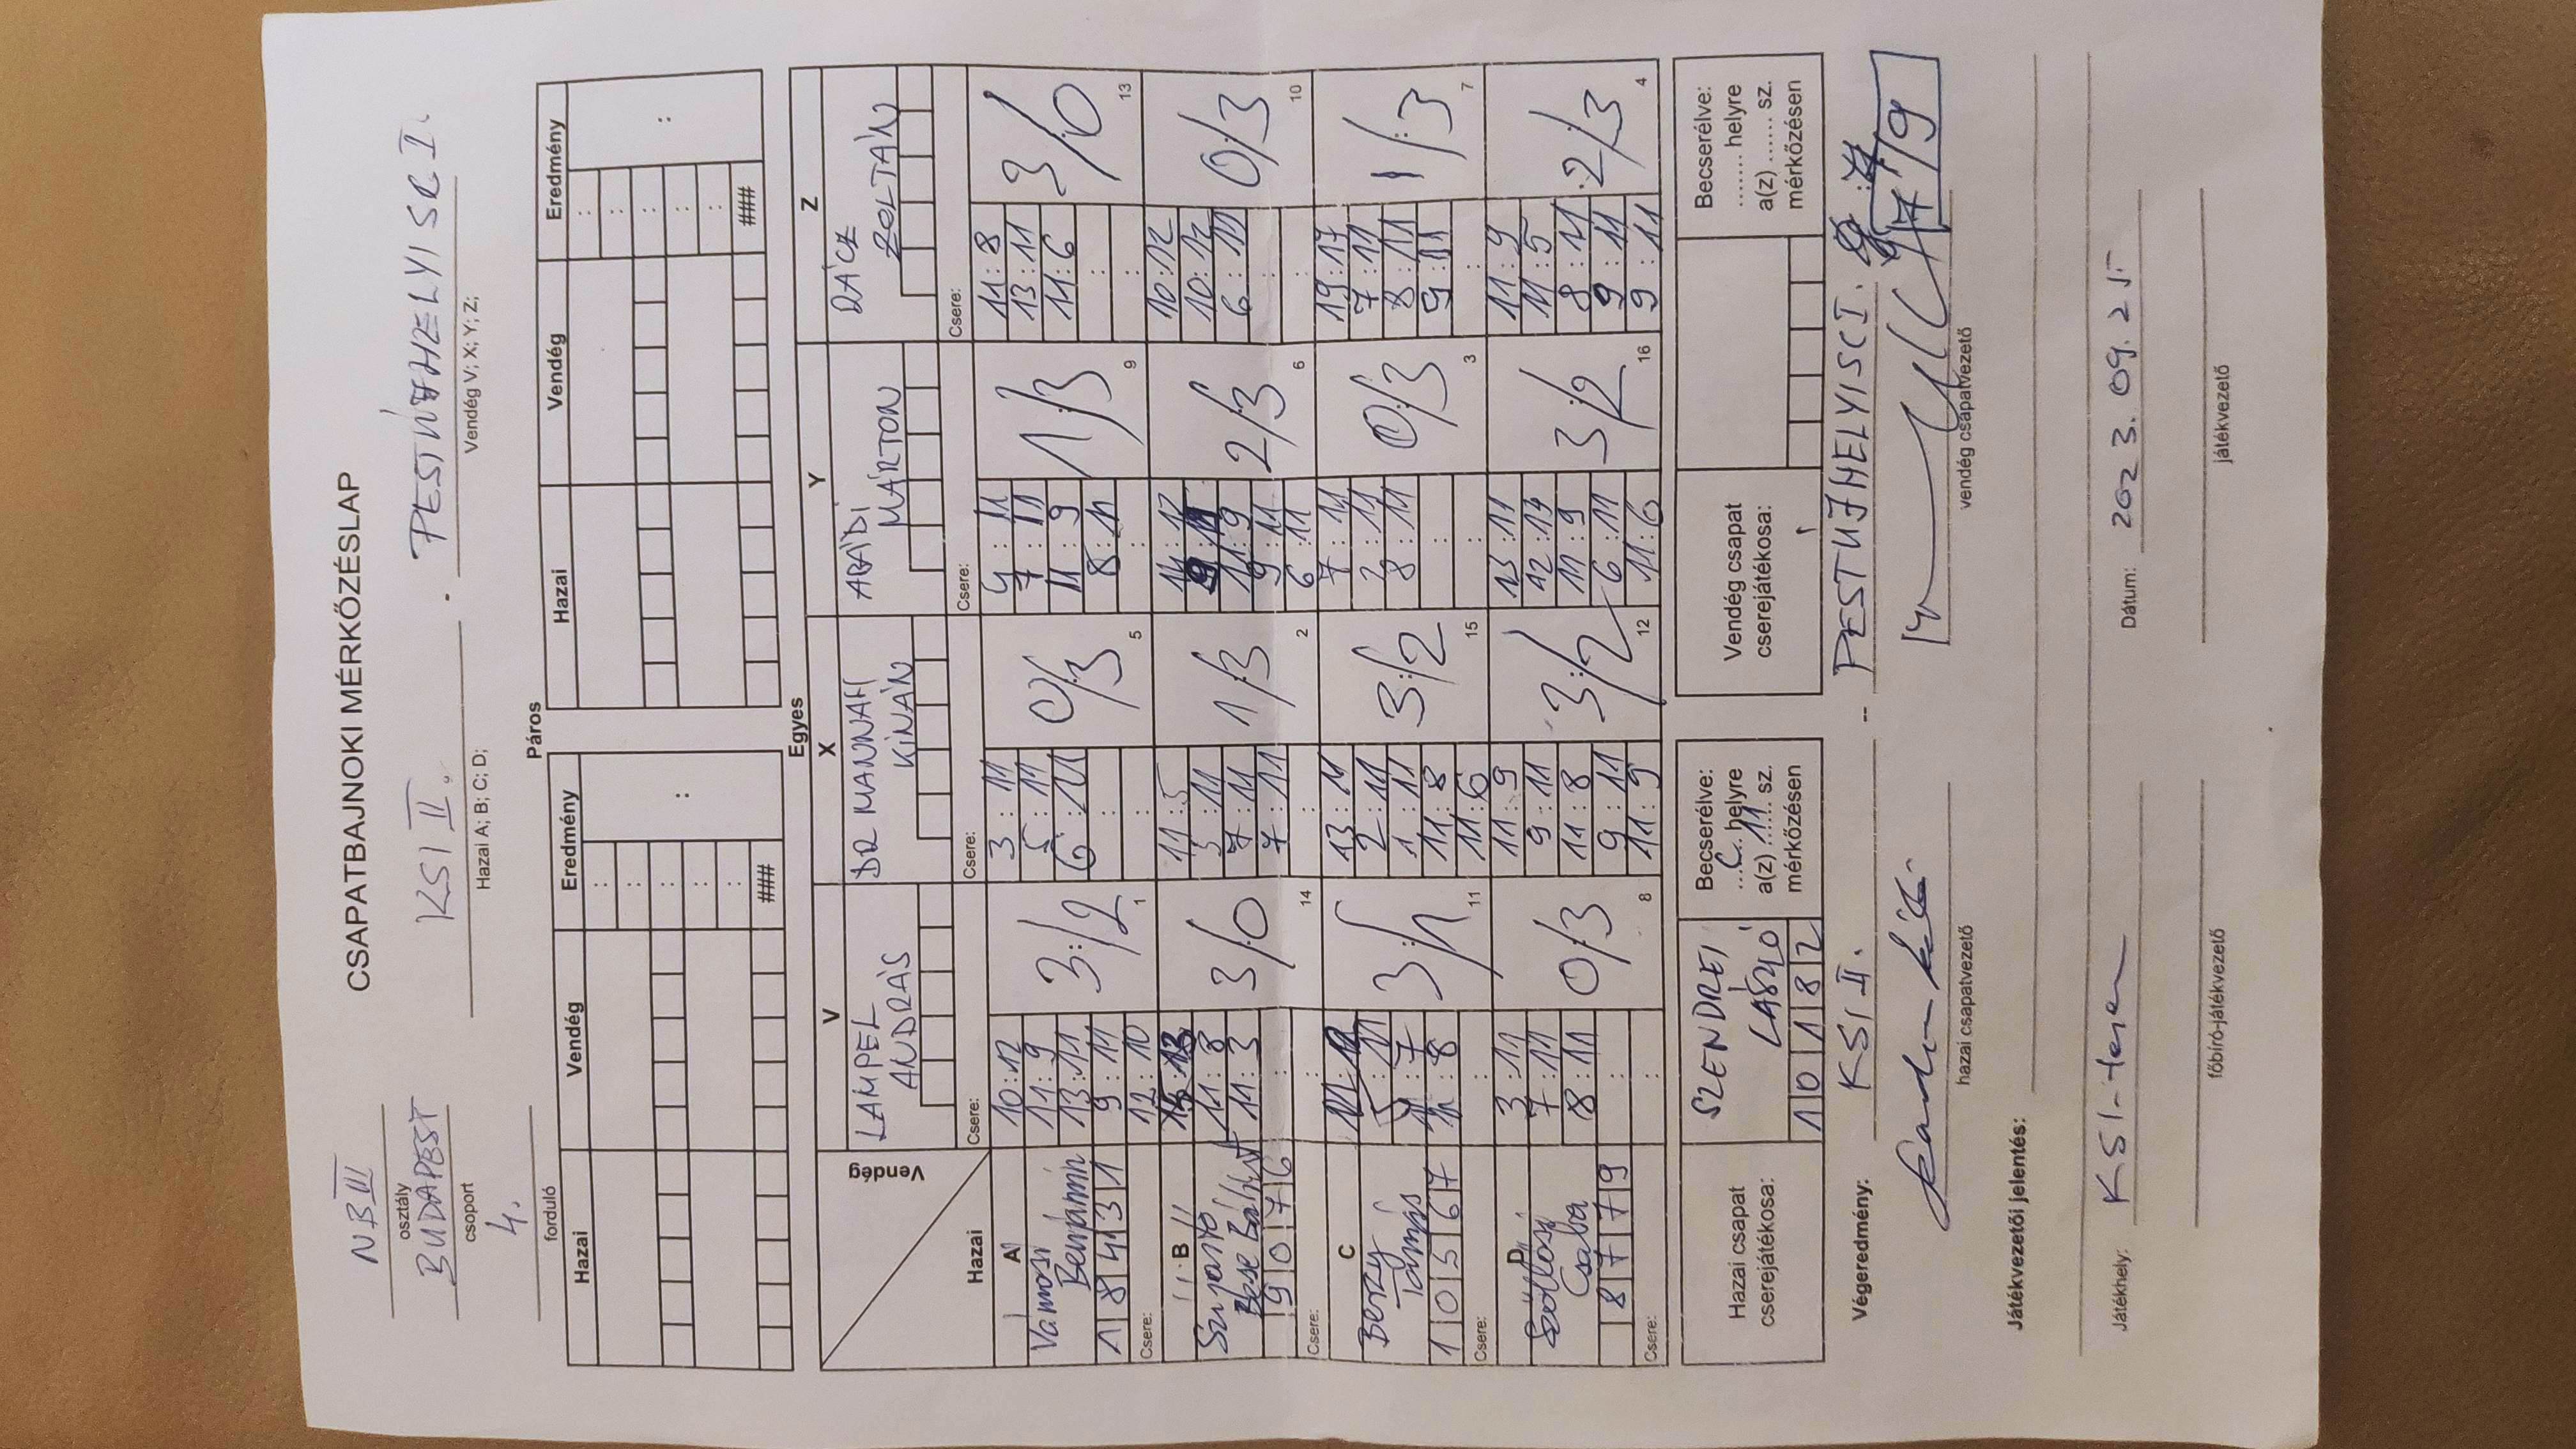 CSAPATBAJNOKI MÉRKŐZÉSLAP
NB III
osztály
BUDAPEST
csoport
4.
forduló
KSI II.
Hazai A; B; C; D;
-
PESTÚJHELYI SC I.
Vendég V; X; Y; Z;
Páros
Hazai Vendég Eredmény Hazai Vendég Eredmény
: :
: :
: :
: :
: :
: :
### ###
Egyes
Vendég V X Y Z
LAMPEL DR MANNAH ABÁDI RÁCZ
ANDRÁS KINÁN MÁRTON ZOLTÁN
Hazai Csere: Csere: Csere: Csere:
A
Vámosi
Benjámin
18431
Csere:
10:12
11:9
13:11
9:11
12:10
3:/2
1
3:11
5:11
6:11
:
:
0/3
5
4:11
7:11
11:9
8:11
:
1/3
9
11:8
13:11
11:6
:
:
3/0
13
B
Bese Bálint
9076
Csere:
15:13
11:8
11:3
:
:
3/0
14
11:5
5:11
7:11
7:11
:
1/3
2
14:12
9:11
11:9
9:11
6:11
2/3
6
10:12
10:12
6:11
:
:
0/3
10
C
Berzy
Tamás
10567
Csere:
5:11
11:7
11:8
:
3:/1
11
13:11
2:11
1:11
11:8
11:6
3:/2
15
7:11
2:11
8:11
:
:
0/3
3
19:17
7:11
8:11
9:11
:
1/3
7
D
Szöllősi
Csaba
8779
Csere:
3:11
7:11
8:11
:
:
0/3
8
11:9
9:11
11:8
9:11
11:9
3:/2
12
13:11
12:14
11:9
6:11
11:6
3:/2
16
11:9
11:5
8:11
9:11
9:11
2/3
4
Hazai csapat
cserejátékosa:
SZENDREI
LÁSZLÓ
10182
Becserélve:
...C.. helyre
a(z) ..11.. sz.
mérkőzésen
Vendég csapat
cserejátékosa:
Becserélve:
....... helyre
a(z) ...... sz.
mérkőzésen
Végeredmény: KSI II. -- PESTÚJHELYI SC I. 7:/9
hazai csapatvezető vendég csapatvezető
Játékvezetői jelentés:
Játékhely: KSI-terem Dátum: 2023.09.25
főbíró-játékvezető játékvezető